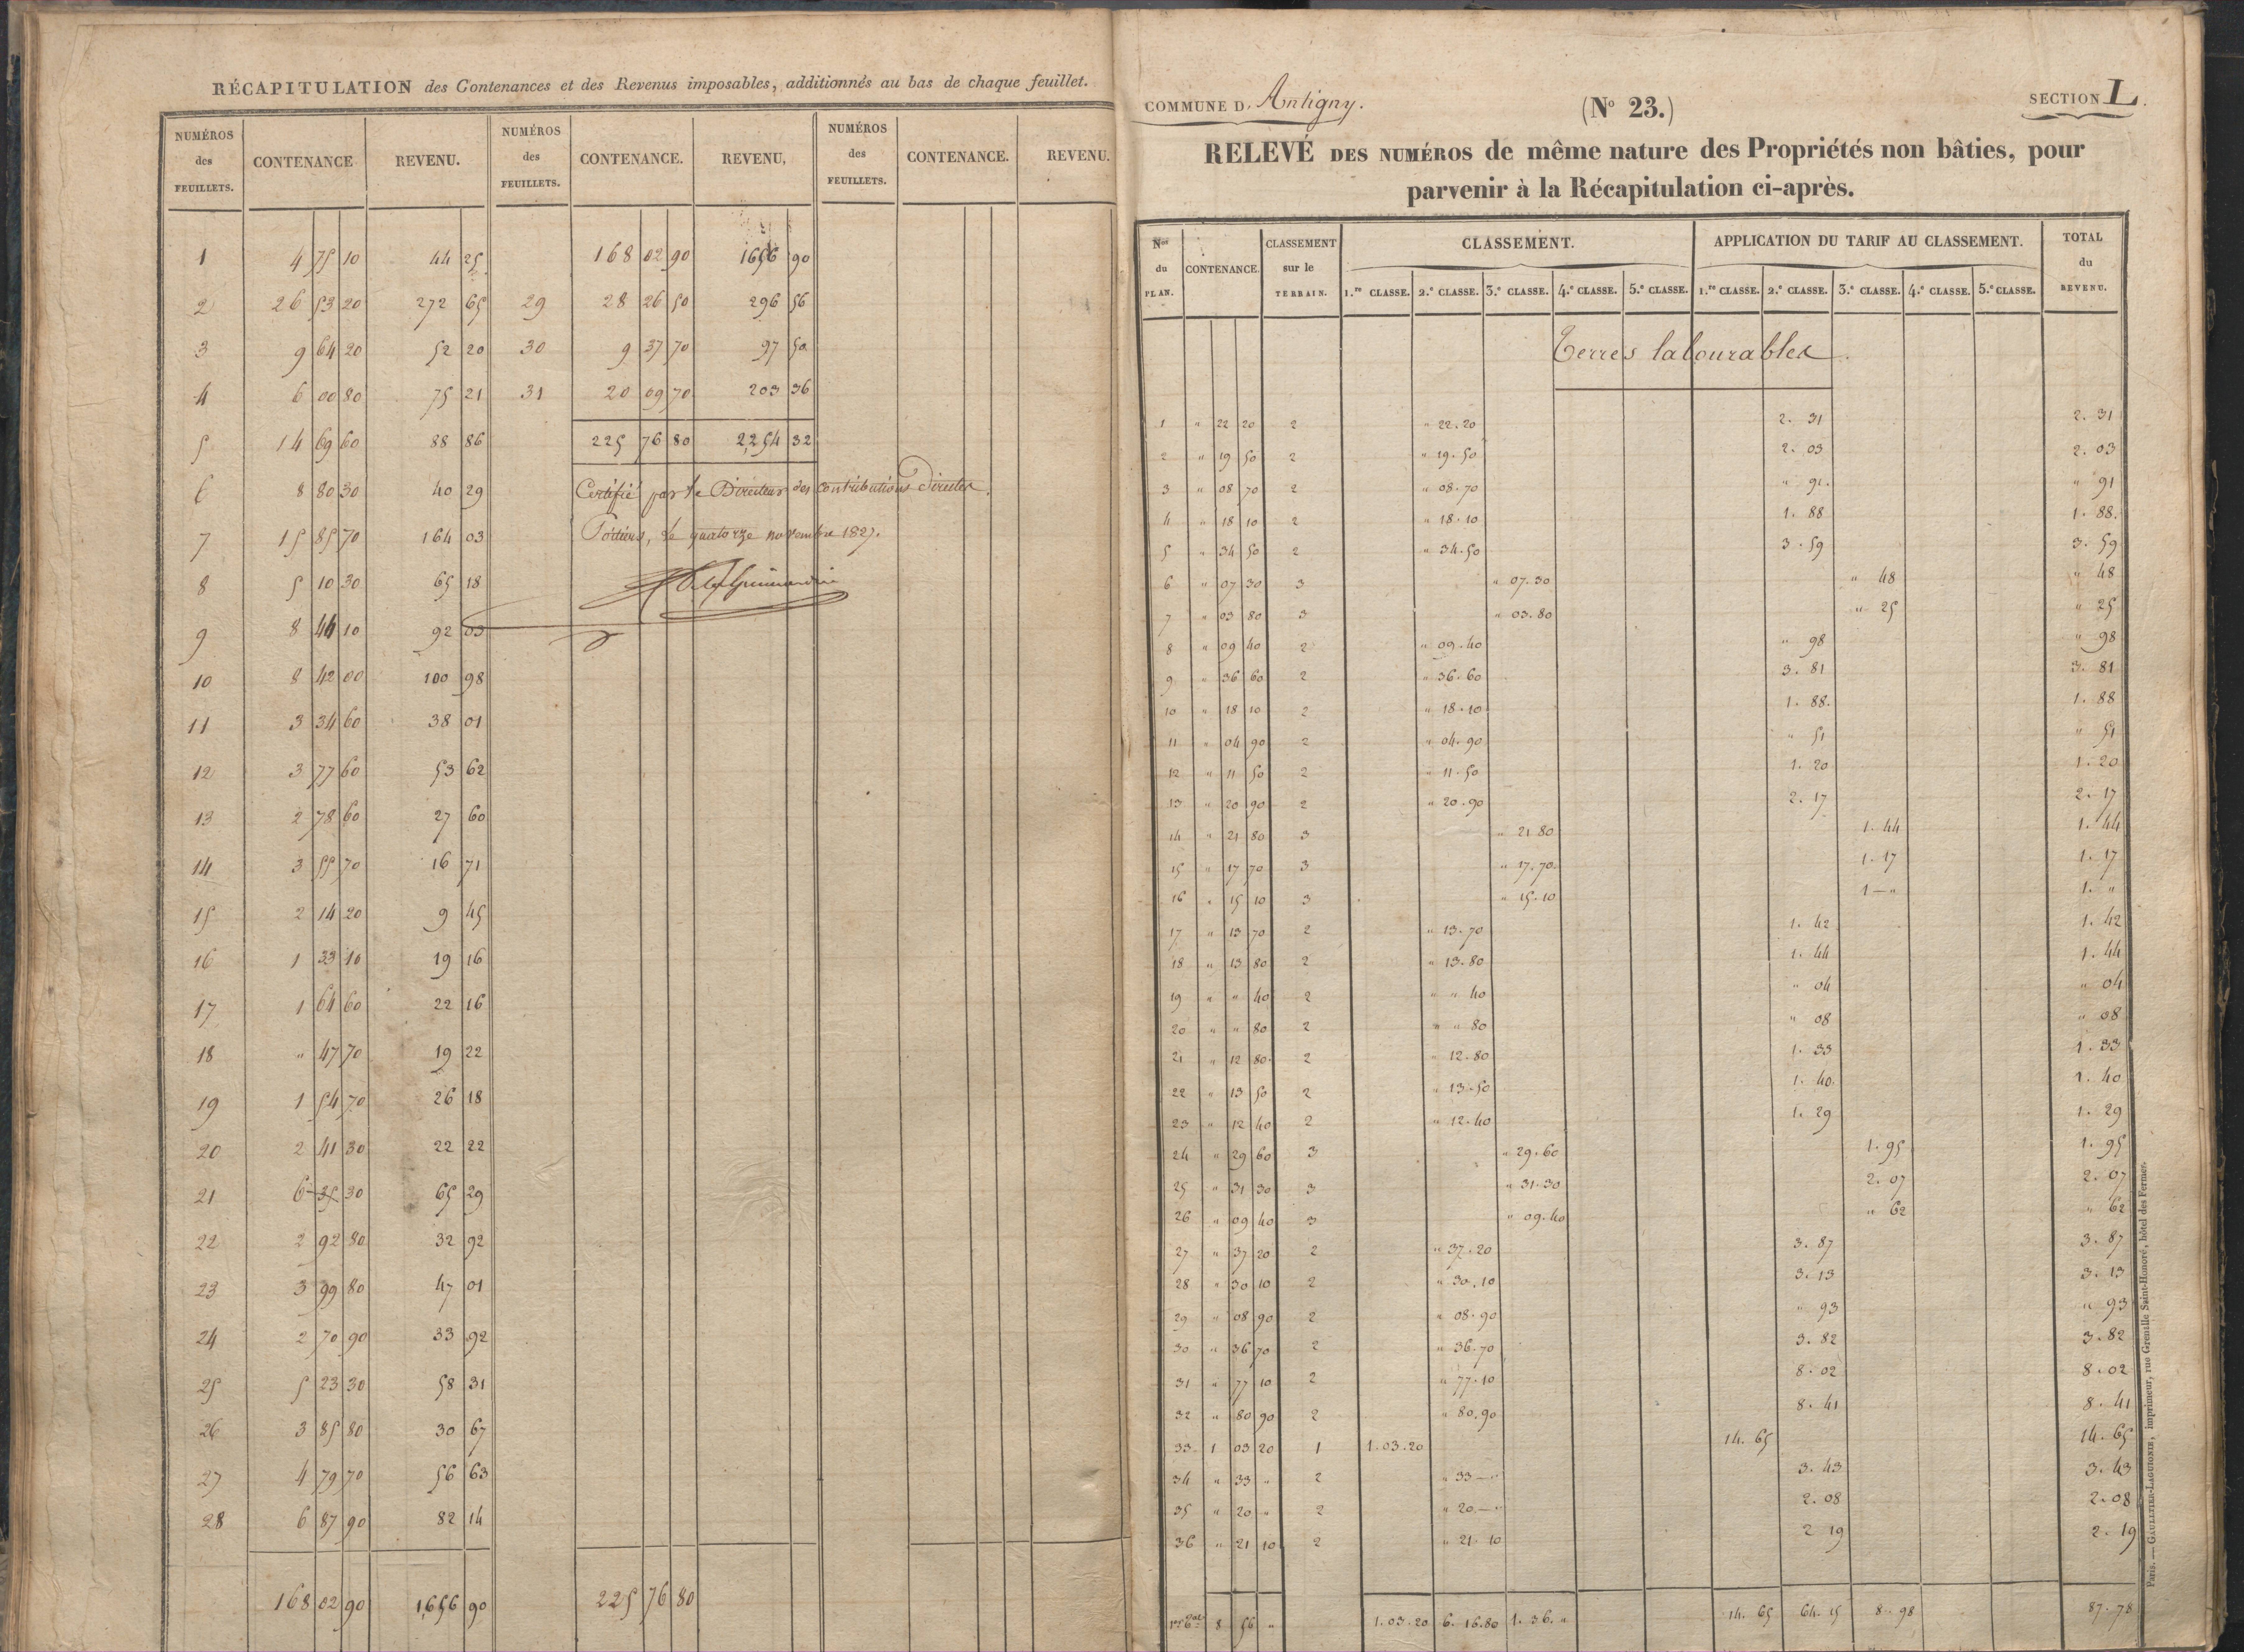 RÉCAPITULATION des Contenances et des Revenus imposables, additionnés au bas de chaque feuillet.
NUMÉROS des FEUILLETS. CONTENANCE REVENU. NUMÉROS des FEUILLETS. CONTENANCE. REVENU, NUMÉROS des FEUILLETS. CONTENANCE. REVENU.
1 4 75 10 44 25 168 02 90 1656 90
2 26 53 20 272 65 29 28 26 50 296 56
3 9 64 20 52 20 30 9 37 70 97 50
4 6 00 80 75 21 31 20 09 70 203 36
5 14 69 60 88 86 225 76 80 2,254 32
6 8 80 30 40 29 Certifié par le Directeur des contributions Directes.
7 15 85 70 164 03 Poitiers, le quatorze novembre 1827.
8 5 10 30 65 18
9 8 44 10 92 03
10 8 42 00 100 98
11 3 34 60 38 01
12 3 77 60 53 62
13 2 78 60 27 60
14 3 55 70 16 71
15 2 14 20 9 45
16 1 33 10 19 16
17 1 64 60 22 16
18 " 47 70 19 22
19 1 54 70 26 18
20 2 41 30 22 22
21 6 35 30 65 29
22 2 92 80 32 92
23 3 99 80 47 01
24 2 70 90 33 92
25 5 23 30 58 31
26 3 85 80 30 67
27 4 79 70 56 63
28 6 87 90 82 14
168 02 90 1,656 90 225 76 80
COMMUNE D' Antigny. (No 23.) SECTION L.
RELEVÉ DES NUMÉROS de même nature des Propriétés non bâties, pour
parvenir à la Récapitulation ci-après.
Nos du PLAN. CONTENANCE. CLASSEMENT sur le TERRAIN. CLASSEMENT. APPLICATION DU TARIF AU CLASSEMENT. TOTAL du REVENU.
1.re CLASSE. 2.e CLASSE. 3.e CLASSE. 4.e CLASSE. 5.e CLASSE. 1.re CLASSE. 2.e CLASSE. 3.e CLASSE. 4.e CLASSE. 5.e CLASSE.
Terres labourables.
1 " 22 20 2 " 22.20 2. 31 2. 31
2 " 19 50 2 " 19.50 2. 03 2. 03
3 " 08 70 2 " 08.70 " 91. " 91
4 " 18 10 2 " 18.10 1. 88 1. 88.
5 " 34 50 2 " 34.50 3. 59 3. 59
6 " 07 30 3 " 07.30 " 48 " 48
7 " 03 80 3 " 03.80 " 25 " 25
8 " 09 40 2 " 09.40 " 98 " 98
9 " 36 60 2 " 36.60 3. 81 3. 81
10 " 18 10 2 " 18.10 1. 88. 1. 88
11 " 04 90 2 " 04.90 " 51 " 51
12 " 11 50 2 " 11.50 1. 20 1. 20
13 " 20 90 2 " 20.90 2. 17 2. 17
14 " 21 80 3 " 21 80 1. 44 1. 44
15 " 17 70 3 " 17.70. 1. 17 1. 17
16 " 15 10 3 " 15.10 1 — " 1. "
17 " 13 70 2 " 13.70 1. 42 1. 42
18 " 13 80 2 " 13.80 1. 44 1. 44
19 " " 40 2 " " 40 " 04 " 04
20 " " 80 2 " " 80 " 08 " 08
21 " 12 80 2 " 12.80 1. 33 1. 33
22 " 13 50 2 " 13.50 1. 40. 1. 40
23 " 12 40 2 " 12.40 1. 29 1. 29
24 " 29 60 3 " 29.60 1. 95 1. 95
25 " 31 30 3 " 31.30 2. 07 2. 07
26 " 09 40 3 " 09.40 " 62 " 62
27 " 37 20 2 " 37.20 3. 87 3. 87
28 " 30 10 2 " 30.10 3. 13 3. 13
29 " 08 90 2 " 08.90 " 93 " 93
30 " 36 70 2 " 36.70 3. 82 3. 82
31 " 77 10 2 " 77.10 8. 02 8. 02
32 " 80 90 2 " 80.90 8. 41 8. 41
33 1 03 20 1 1.03.20 14. 65 14. 65
34 " 33 " 2 " 33 — " 3. 43 3. 43
35 " 20 " 2 " 20 — " 2. 08 2. 08
36 " 21 10 2 " 21. 10 2 19 2. 19
8 56 " 1.03.20 6. 16.80 1. 36. " 14. 65 64. 15 8. 98 87. 78
Paris. — GAULTIER-LAGUIONIE, imprimeur, rue Grenelle Saint-Honoré, hôtel des Fermes.